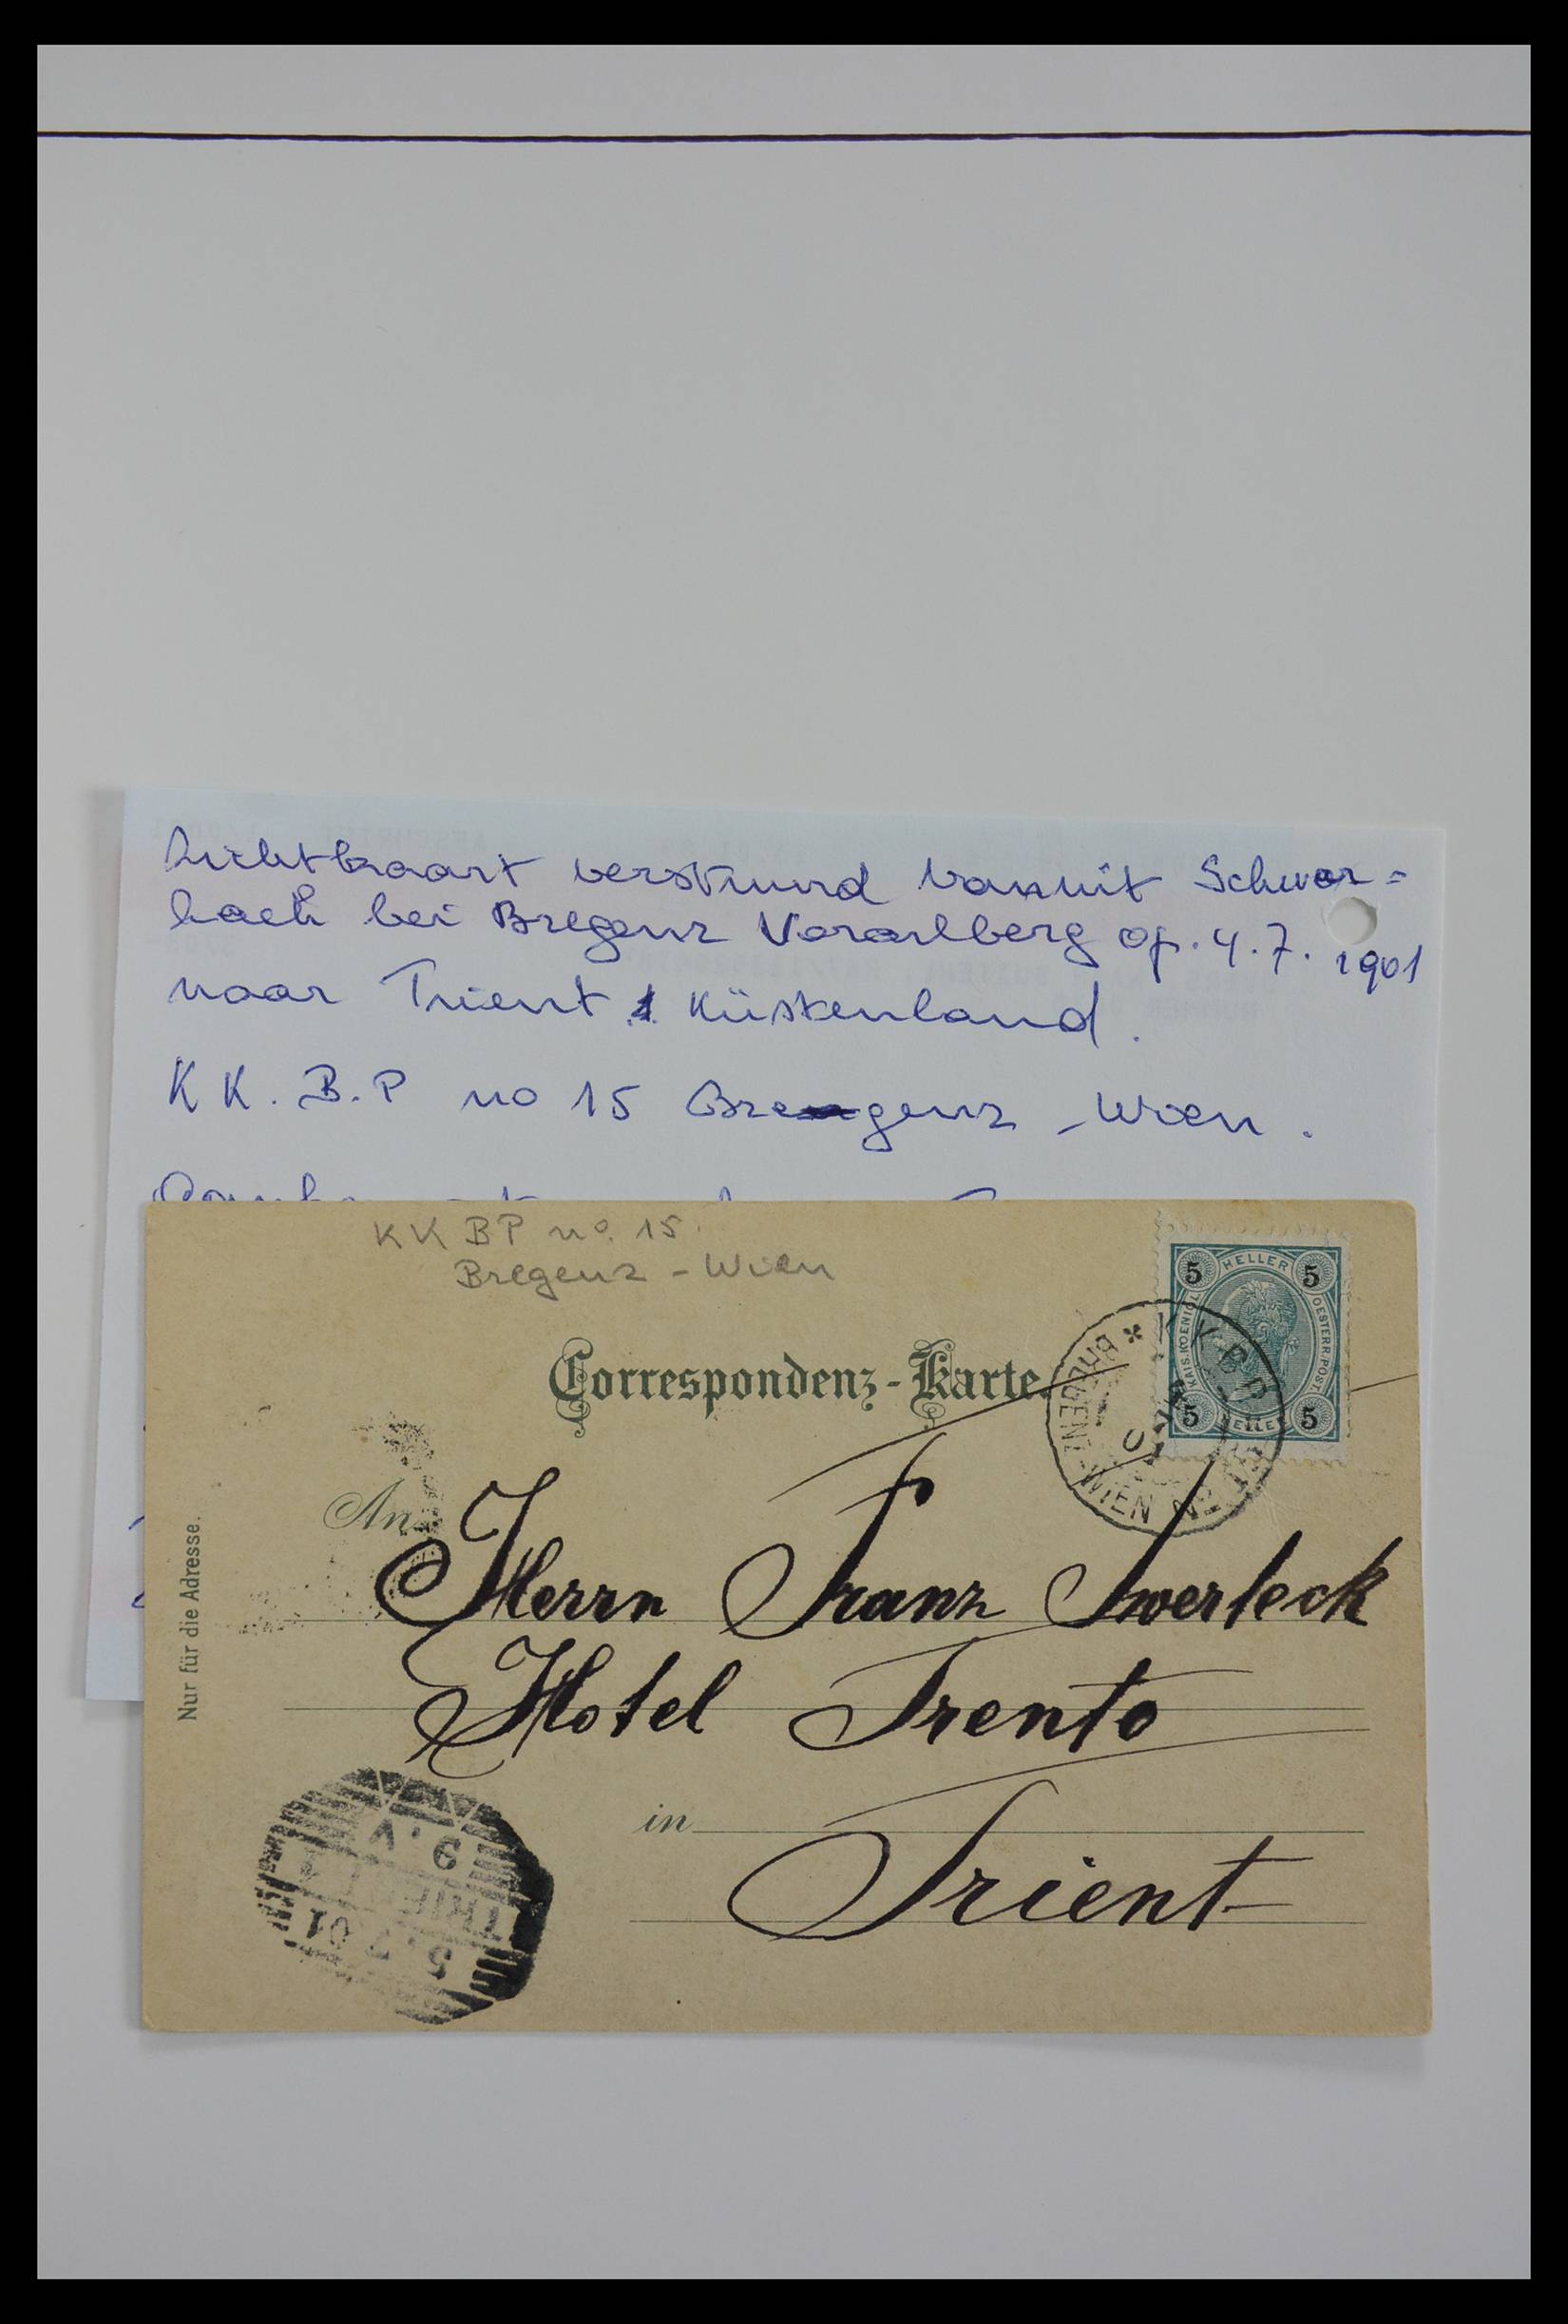 Lichtkaart verstuurd vanuit Schwar=
bach bei Bregenz Vorarlberg op. 4.7. 1901
naar Trient 1 Küstenland.
KK. B.P no 15 Bregenz - Wien.
KK BP no. 15.
Bregenz - Wien
5 HELLER 5
KAIS. KOENIGL.
OESTERR. POST.
5 HELLER 5
K.K. B.P.
BREGENZ-WIEN No
Correspondenz-Karte.
An
Herrn Franz Swerleck
Hotel Trento
in
Trient
Nur für die Adresse.
9.V
TRIENT 1
5.7.01